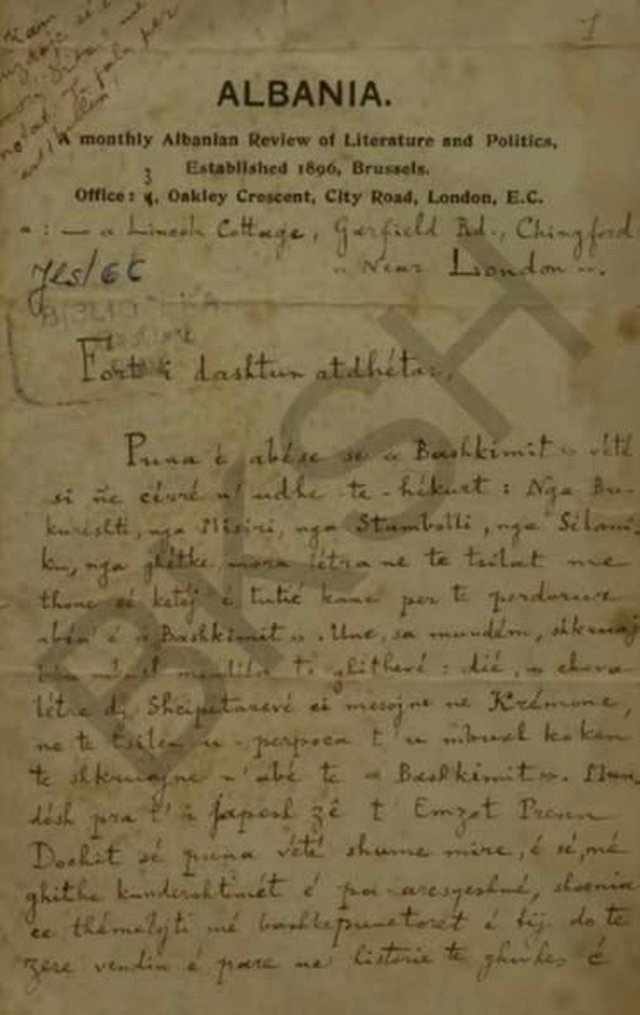 1
ALBANIA.
A monthly Albanian Review of Literature and Politics,
Established 1896, Brussels.
3
Office: 4, Oakley Crescent, City Road, London, E.C.
Lincoln Cottage, Garfield Rd., Chingford
Near London
Fort i dashtun atdhétar,
Puna é abése se « Bashkimit » vété
si ñe cérré n' udhe te-hékurt: Nga Bu-
kuréshti, nga Misiri, nga Stambolli, nga Sélani-
ku, nga ghithe mora létra ne te tsilat me
thone sé ketéj é tutié kane per te perdorur
abén' é « Bashkimit ». Une, sa mundém, shkruaj
te ghithevé: dié, u chova
létre dy Shcipetarevé ci mesojne ne Krémone,
ne te tsilen u-perpoca t'u mbushl koken
te shkruajne n'abé te « Bashkimit ». Mun-
désh pra t'i japesh zê t Emzot Precun
Dochit sé puna vété shume mire, é sé, mé
ghithe kundershtimét é pa-aresyeshmé, shocnia
ce thémelojti mé bashkepunetorét é tij do te
zere vendin é pare ne historie te ghuhes é
BKSH